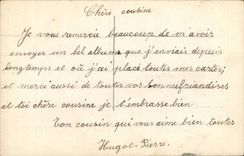 Chère cousine
Je vous remercie beaucoup de m'avoir
envoyer un bel album que j'enviais depuis
longtemps et où j'ai placé toutes mes cartes;
et merci aussi de toutes vos bonnes friandises
et toi chère cousine je t'embrasse bien
Ton cousin qui vous aime bien toutes
Hugot. Pierre.